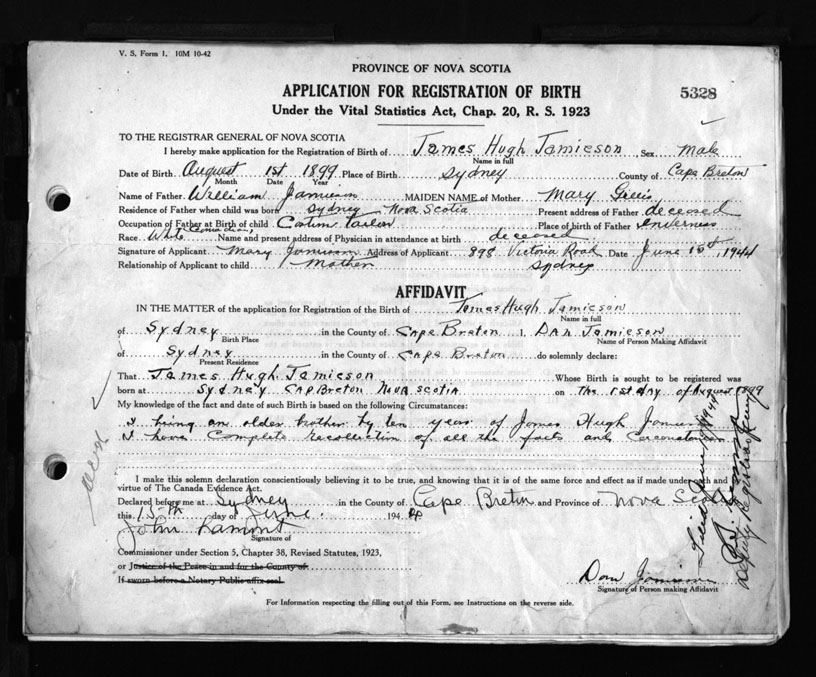 V. S. Form 1. 10M 10-42
PROVINCE OF NOVA SCOTIA
APPLICATION FOR REGISTRATION OF BIRTH
5328
Under the Vital Statistics Act, Chap. 20, R. S. 1923
TO THE REGISTRAR GENERAL OF NOVA SCOTIA
I hereby make application for the Registration of Birth of James Hugh Jamieson Sex Male
Name in full
Date of Birth August 1st 1899 Place of Birth Sydney County of Cape Breton
Month Date Year
Name of Father William Jamieson MAIDEN NAME of Mother Mary Gillis
Residence of Father when child was born Sydney Nova Scotia Present address of Father deceased
Occupation of Father at Birth of child Custum Tailor Place of birth of Father Inverness
Race White (Canadian) Name and present address of Physician in attendance at birth deceased
Signature of Applicant Mary Jamieson Address of Applicant 898 Victoria Road Date June 15th, 1944
Relationship of Applicant to child Mother Sydney
AFFIDAVIT
IN THE MATTER of the application for Registration of the Birth of James Hugh Jamieson
Name in full
of Sydney in the County of Cape Breton I, Dan Jamieson
Birth Place Name of Person Making Affidavit
of Sydney in the County of Cape Breton do solemnly declare:
Present Residence
That James Hugh Jamieson Whose Birth is sought to be registered was
born at Sydney Cap Breton Nova Scotia on the 1st day of August 1899
My knowledge of the fact and date of such Birth is based on the following Circumstances:
I being an older brother by ten years of James Hugh Jamieson
I have Complete recollection of all the facts and
I make this solemn declaration conscientiously believing it to be true, and knowing that it is of the same force and effect as if made under oath and
virtue of The Canada Evidence Act.
Declared before me at Sydney in the County of Cape Breton and Province of Nova Scotia
this 15th day of June 1944
John Lamont
Signature of
Commissioner under Section 5, Chapter 38, Revised Statutes, 1923,
or Justice of the Peace in and for the County of
If sworn before a Notary Public affix seal.
Dan Jamieson
Signature of Person making Affidavit
For Information respecting the filling out of this Form, see Instructions on the reverse side.
Deputy Registrar